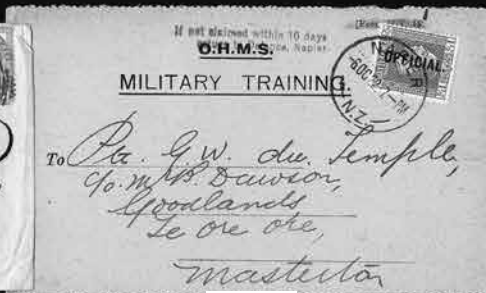 If not claimed within 10 days
Napier.
O.H.M.S.
OFFICIAL.
MILITARY TRAINING.
N.Z.
To Pte. G.W. du. Temple,
c/o. Mr B. Dawson,
Goodlands
Te Ore Ore,
Masterton